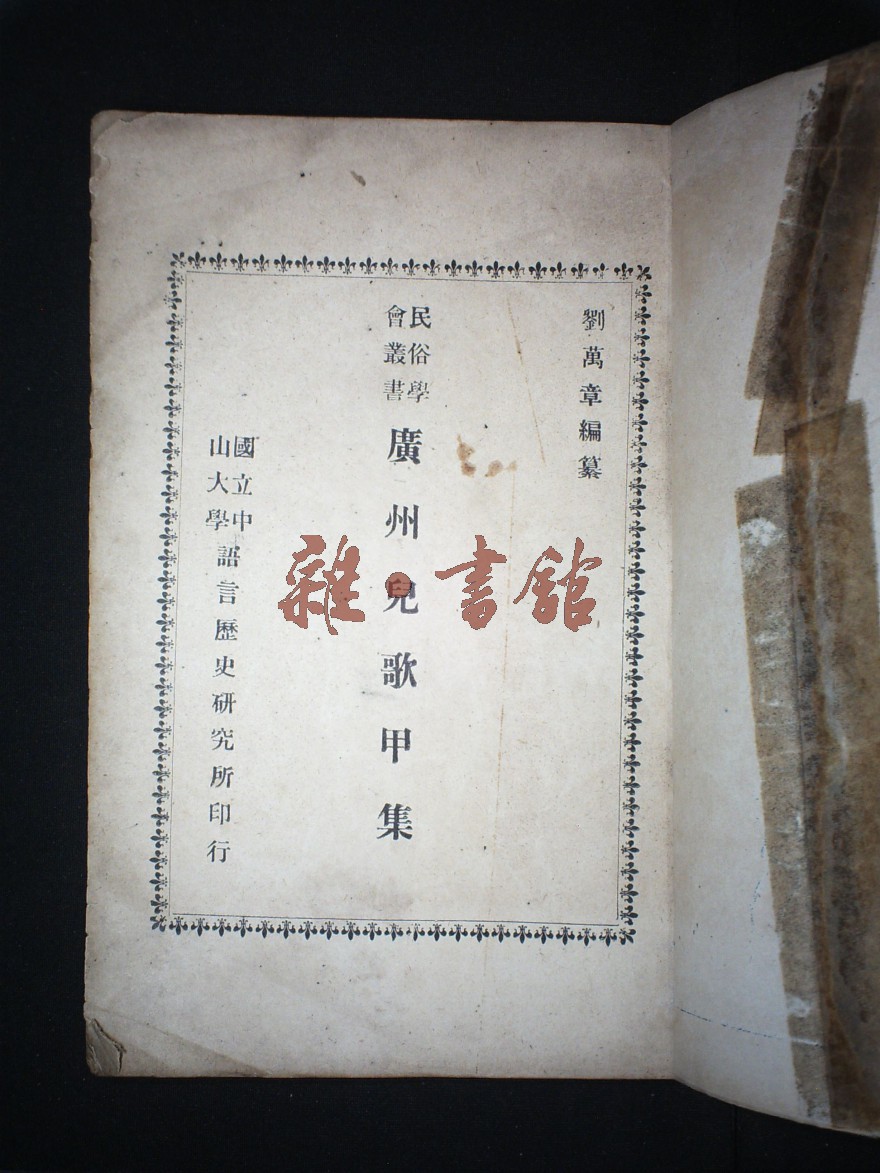 劉萬章編纂
民俗學
會叢書
廣州兒歌甲集
國立中
山大學
語言歷史研究所印行
雜書館